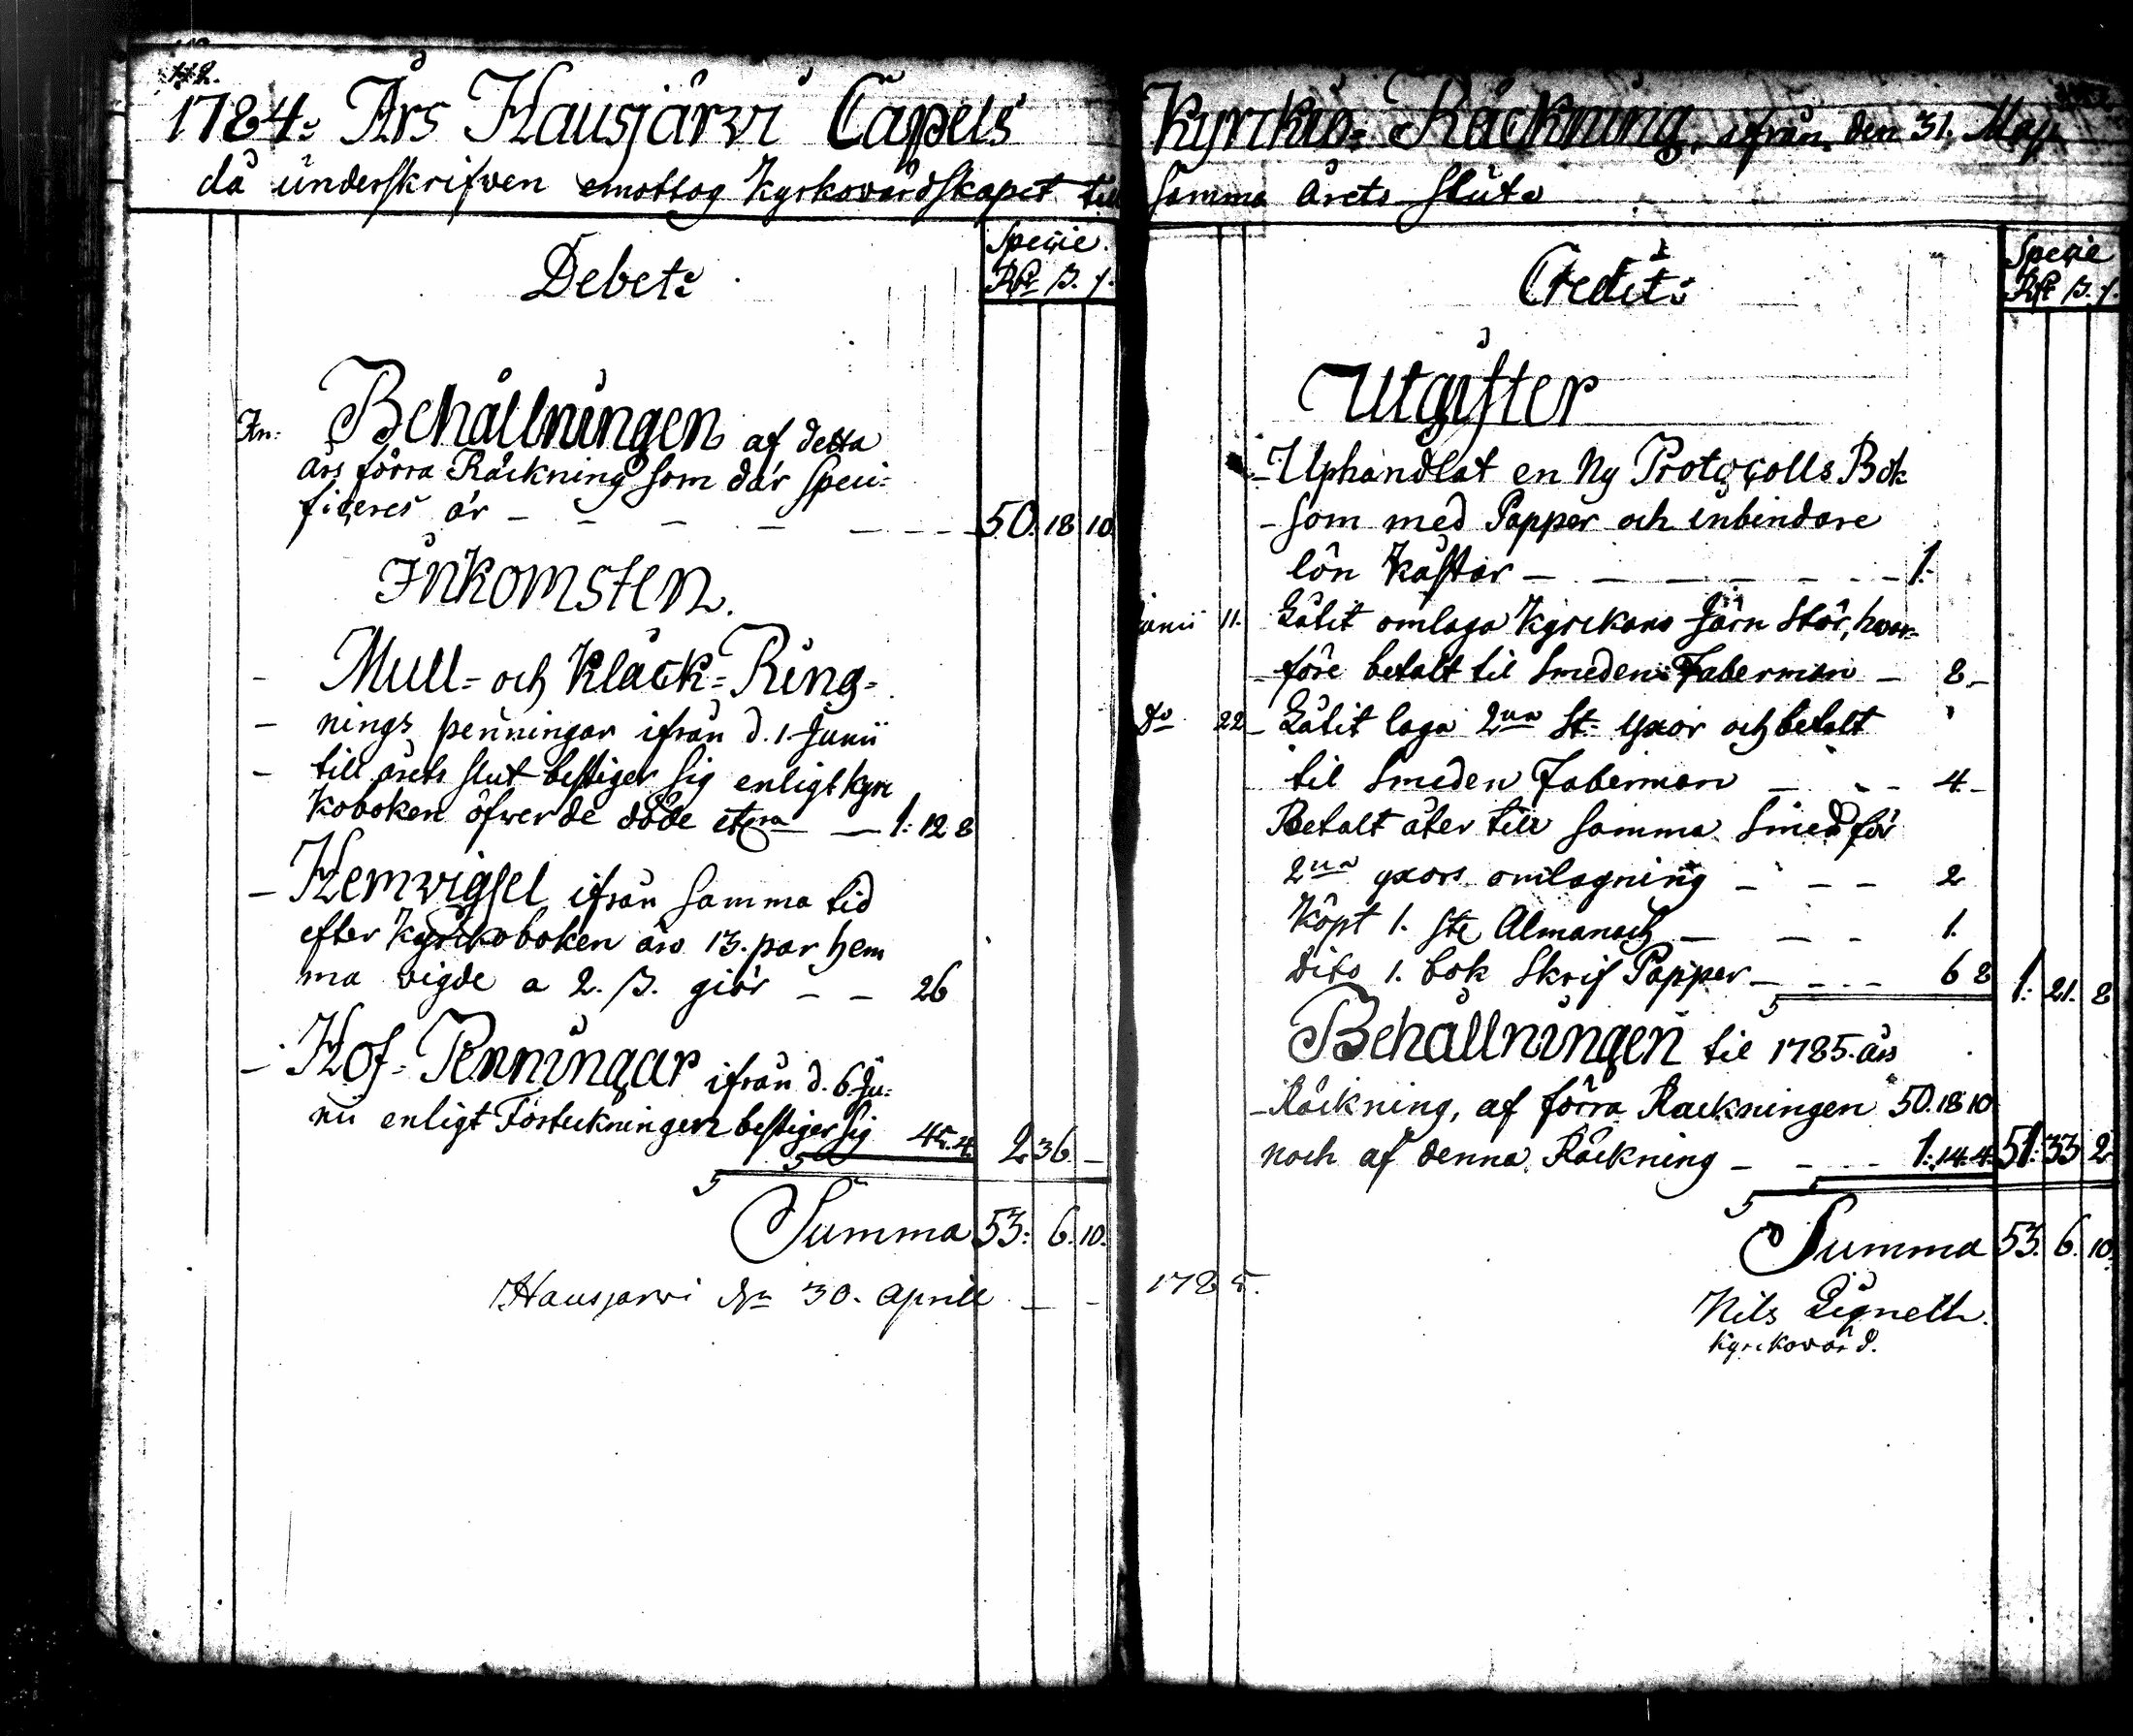 112.
1784. Års Hausjärvi Capels
då underskrifven emottog Kyrkovärdskapet till
Debet:
Specie
Rdr ß. r.
Behållningen af detta
års förra Räckning som där speci=
ficeres är - - - - - - 50. 18. 10
Inkomsten.
- Mull- och Kläck-Ring-
- nings penningar ifrån d. 1. Junii
- till årets slut bestiger sig enligt kyr
koboken öfwer de döde etcra - 1: 12 8
- Hemvigsel ifrån samma tid
efter Kyrckoboken äro 13. par hem
ma vigde a 2. ß. giör - - 26
- Hof-Penningar ifrån d. 6. Ju:
nii enligt Förteckningen bestiger sig 45. 4. 2 36. -
Summa 53: 6. 10.
Hausjarvi den 30. Aprill - -
Kyrckio-Räckning, ifrån den 31. Maji
samma årets slut.
Credit:
Specie
Rdr ß. r.
Utgifter
- Uphandlat en Ny Protocolls Bok
- som med Papper och inbindare
lön kåstar - - - - - - 1.-
Junii 11. Låtit omlaga Kyrckans Järn Stör, hvar-
- före betalt til Smeden Faberman - 8 -
Do 22 - Låtit laga 2ne St= yxor och betalt
til Smeden Faberman - - - 4 -
Betalt åter till samma Smed för
2ne yxors omlagning - - - 2
Köpt 1. ste Almanach - - - 1.
dito 1. bok Skrif Papper - - - - 6 8 1: 21. 8
Behållningen til 1785. års
- Räckning, af förra Räckningen 50. 18 10
noch af denna Räckning - - - - 1: 14. 4. 51: 33 2
Summa 53. 6. 10.
1785.
Nils Lignell
Kyrckovärd.